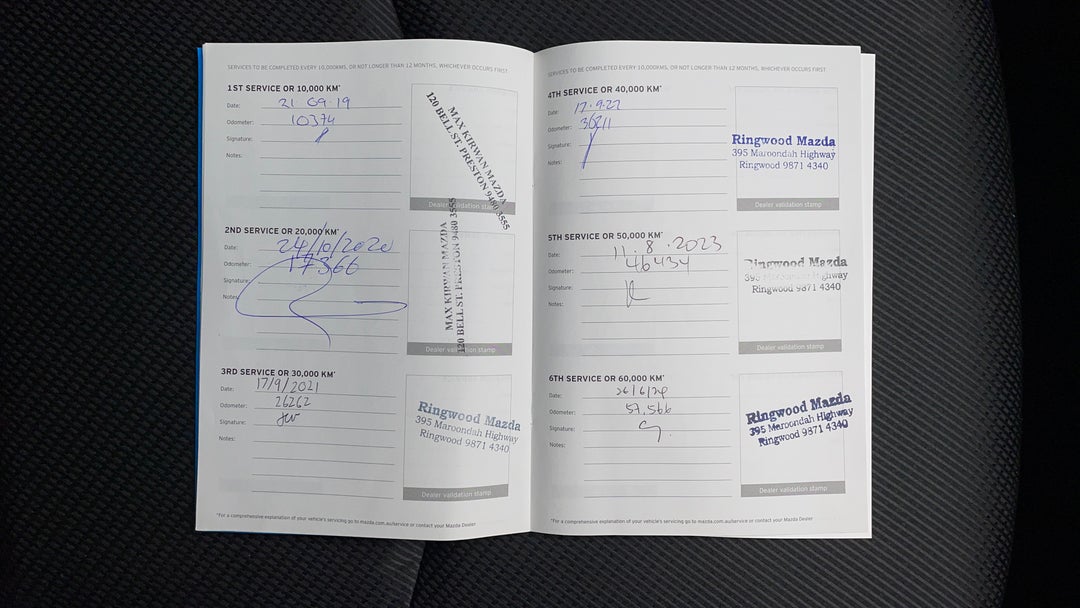 SERVICES TO BE COMPLETED EVERY 10,000KMS, OR NOT LONGER THAN 12 MONTHS, WHICHEVER OCCURS FIRST
1ST SERVICE OR 10,000 KM*
Date: 21 09.19
Odometer: 10374
Signature:
Notes:
MAX KIRWAN MAZDA
120 BELL ST. PRESTON 9480 3555
Dealer validation stamp
2ND SERVICE OR 20,000 KM*
Date: 24/10/2020
Odometer: 17366
Signature:
Notes:
MAX KIRWAN MAZDA
120 BELL ST. PRESTON 9480 3555
Dealer validation stamp
3RD SERVICE OR 30,000 KM*
Date: 17/9/2021
Odometer: 26262
Signature:
Notes:
Ringwood Mazda
395 Maroondah Highway
Ringwood 9871 4340
Dealer validation stamp
*For a comprehensive explanation of your vehicle's servicing go to mazda.com.au/service or contact your Mazda Dealer
SERVICES TO BE COMPLETED EVERY 10,000KMS, OR NOT LONGER THAN 12 MONTHS, WHICHEVER OCCURS FIRST
4TH SERVICE OR 40,000 KM*
Date: 17.9.22
Odometer: 36211
Signature:
Notes:
Ringwood Mazda
395 Maroondah Highway
Ringwood 9871 4340
Dealer validation stamp
5TH SERVICE OR 50,000 KM*
Date: 11.8.2023
Odometer: 46434
Signature:
Notes:
Ringwood Mazda
395 Maroondah Highway
Ringwood 9871 4340
Dealer validation stamp
6TH SERVICE OR 60,000 KM*
Date: 26/6/24
Odometer: 57,566
Signature:
Notes:
Ringwood Mazda
395 Maroondah Highway
Ringwood 9871 4340
Dealer validation stamp
*For a comprehensive explanation of your vehicle's servicing go to mazda.com.au/service or contact your Mazda Dealer